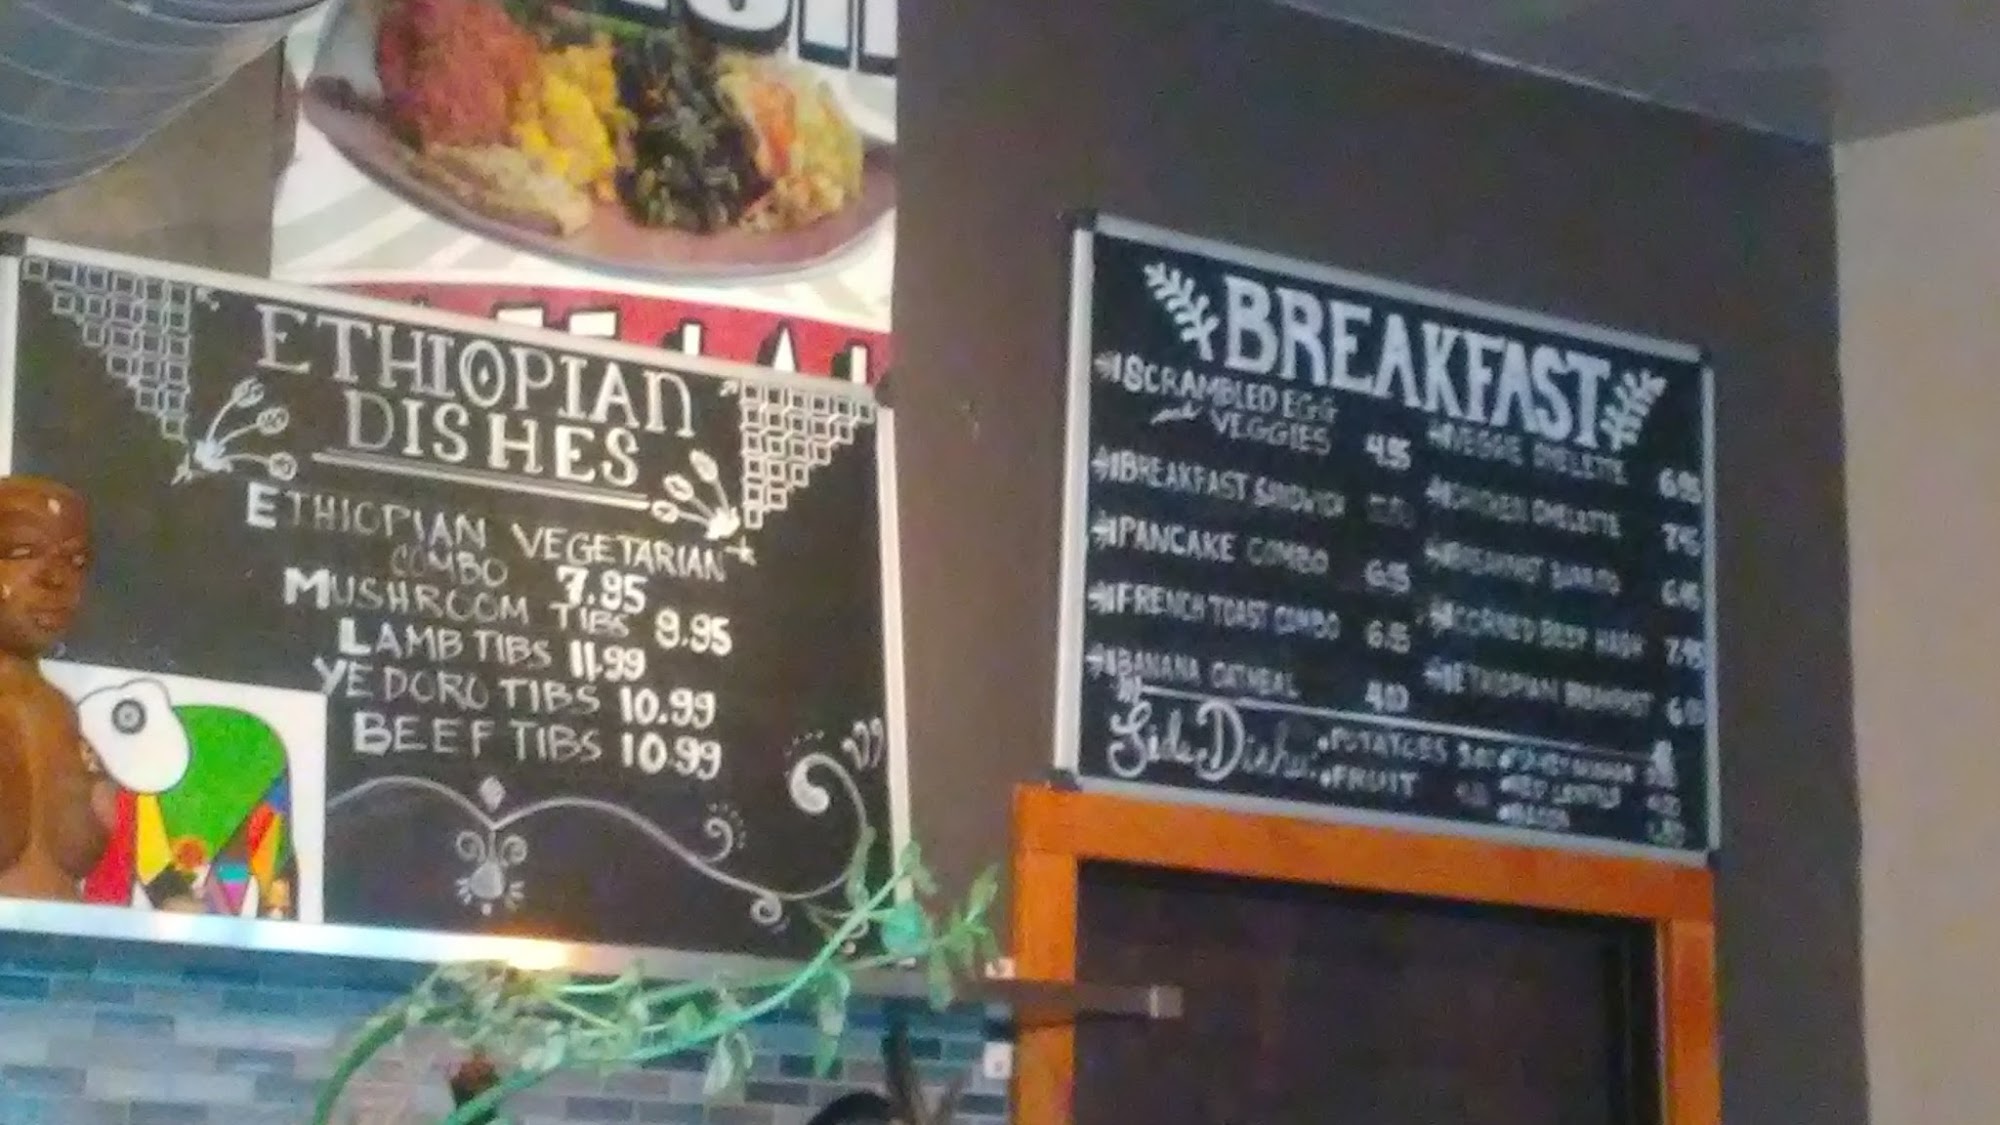 ETHIOPIAN
DISHES
ETHIOPIAN VEGETARIAN
COMBO 7.95
MUSHROOM TIBS 9.95
LAMB TIBS 11.99
YE DORO TIBS 10.99
BEEF TIBS 10.99
BREAKFAST
SCRAMBLED EGG
and VEGGIES 4.95
BREAKFAST SANDWICH
PANCAKE COMBO 6.95
FRENCH TOAST COMBO 6.95
BANANA OATMEAL
VEGGIE OMELETTE 6.95
CHICKEN OMELETTE
BREAKFAST BURRITO
CORNED BEEF HASH 7.95
ETHIOPIAN BREAKFAST
Side Dishes:
POTATOES
FRUIT
RED LENTILS
BACON